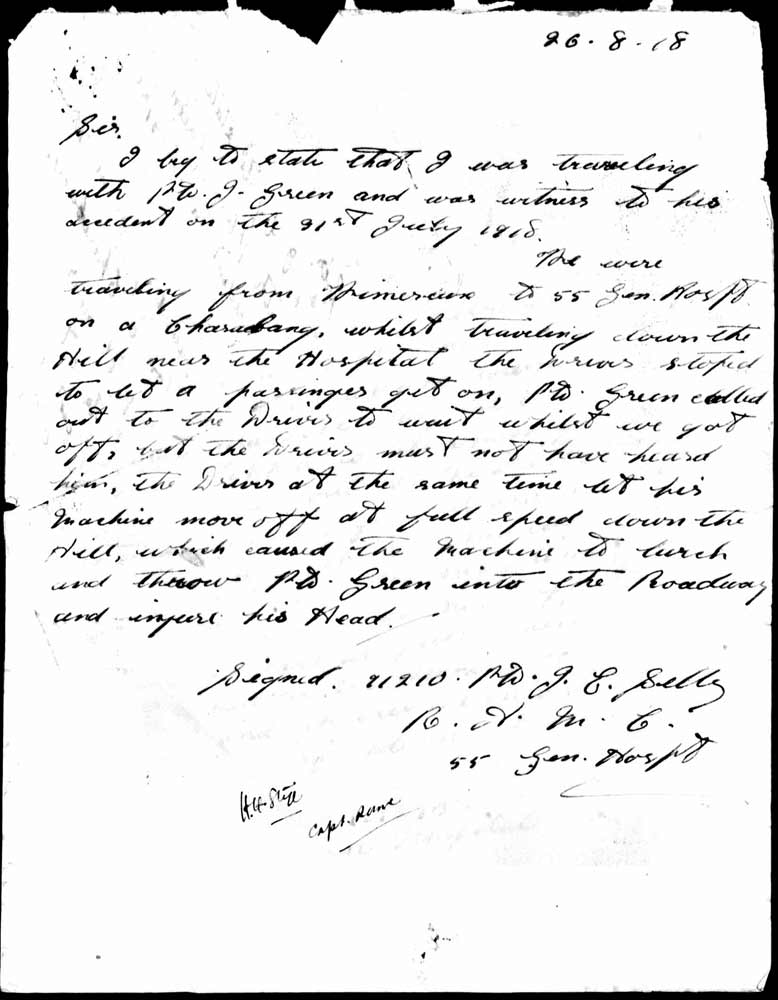 26. 8. 18
Sir.
I beg to state that I was traveling
with Pte. J. Green and was witness to his
accedent on the 21st July 1918.
We were
traveling from Wimereux to 55 Gen. Hospt
on a Charabang, whilst traveling down the
Hill near the Hospital the Driver stoped
to let a passinger get on, Pte. Green called
out to the Driver to wait whilst we got
off, but the Driver must not have heard
him, the Driver at the same time let his
Machine move off at full speed down the
Hill, which caused the Machine to lurch
and throw Pte. Green into the Roadway
and injure his Head.
Signed. 71210. Pte. J. C.
R. A. M. C.
55 Gen. Hospt
H.H.
Capt. RAMC